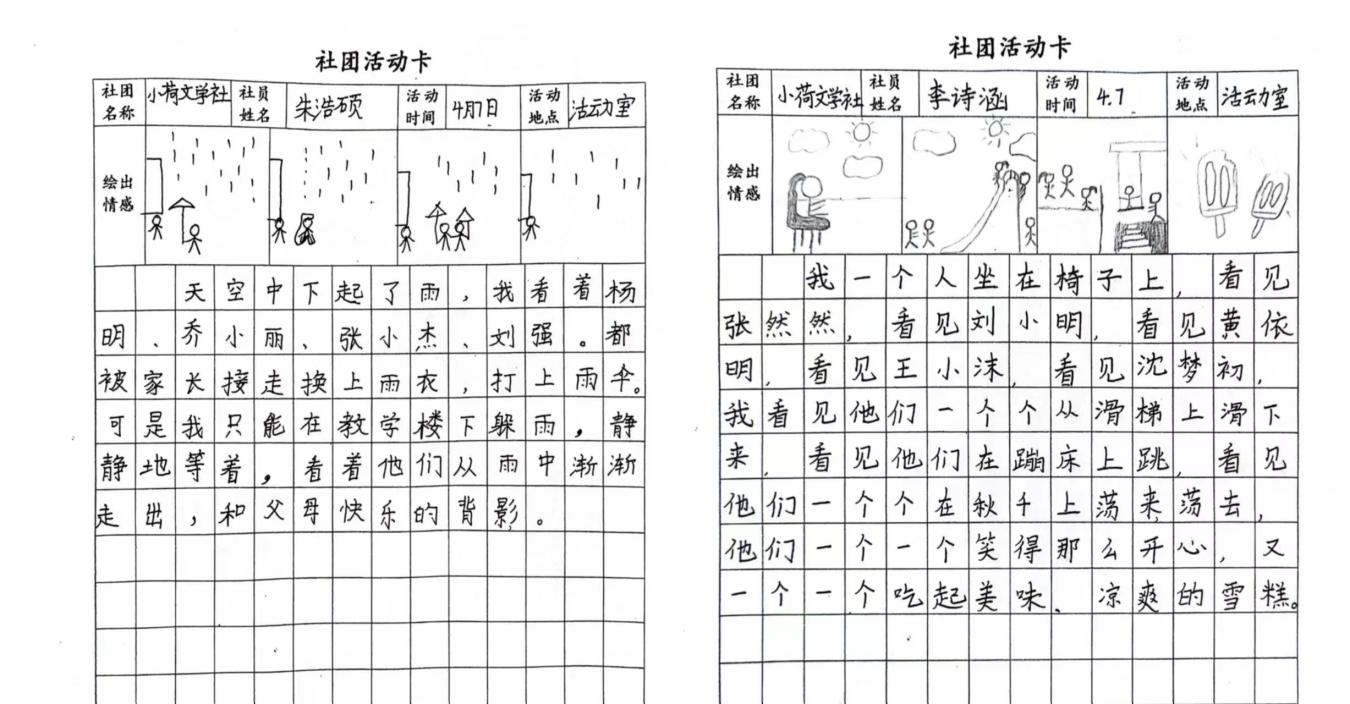 社团活动卡
社团名称 小荷文学社 社员姓名 朱浩硕 活动时间 4月7日 活动地点 活动室
绘出情感
天空中下起了雨，我看着杨
明、乔小丽、张小杰、刘强。都
被家长接走换上雨衣，打上雨伞。
可是我只能在教学楼下躲雨，静
静地等着，看着他们从雨中渐渐
走出，和父母快乐的背影。
社团活动卡
社团名称 小荷文学社 社员姓名 李诗涵 活动时间 4.7 活动地点 活动室
绘出情感
我一个人坐在椅子上，看见
张然然，看见刘小明，看见黄依
明，看见王小沫，看见沈梦初，
我看见他们一个个从滑梯上滑下
来，看见他们在蹦床上跳，看见
他们一个个在秋千上荡来荡去，
他们一个一个笑得那么开心，又
一个一个吃起美味、凉爽的雪糕。